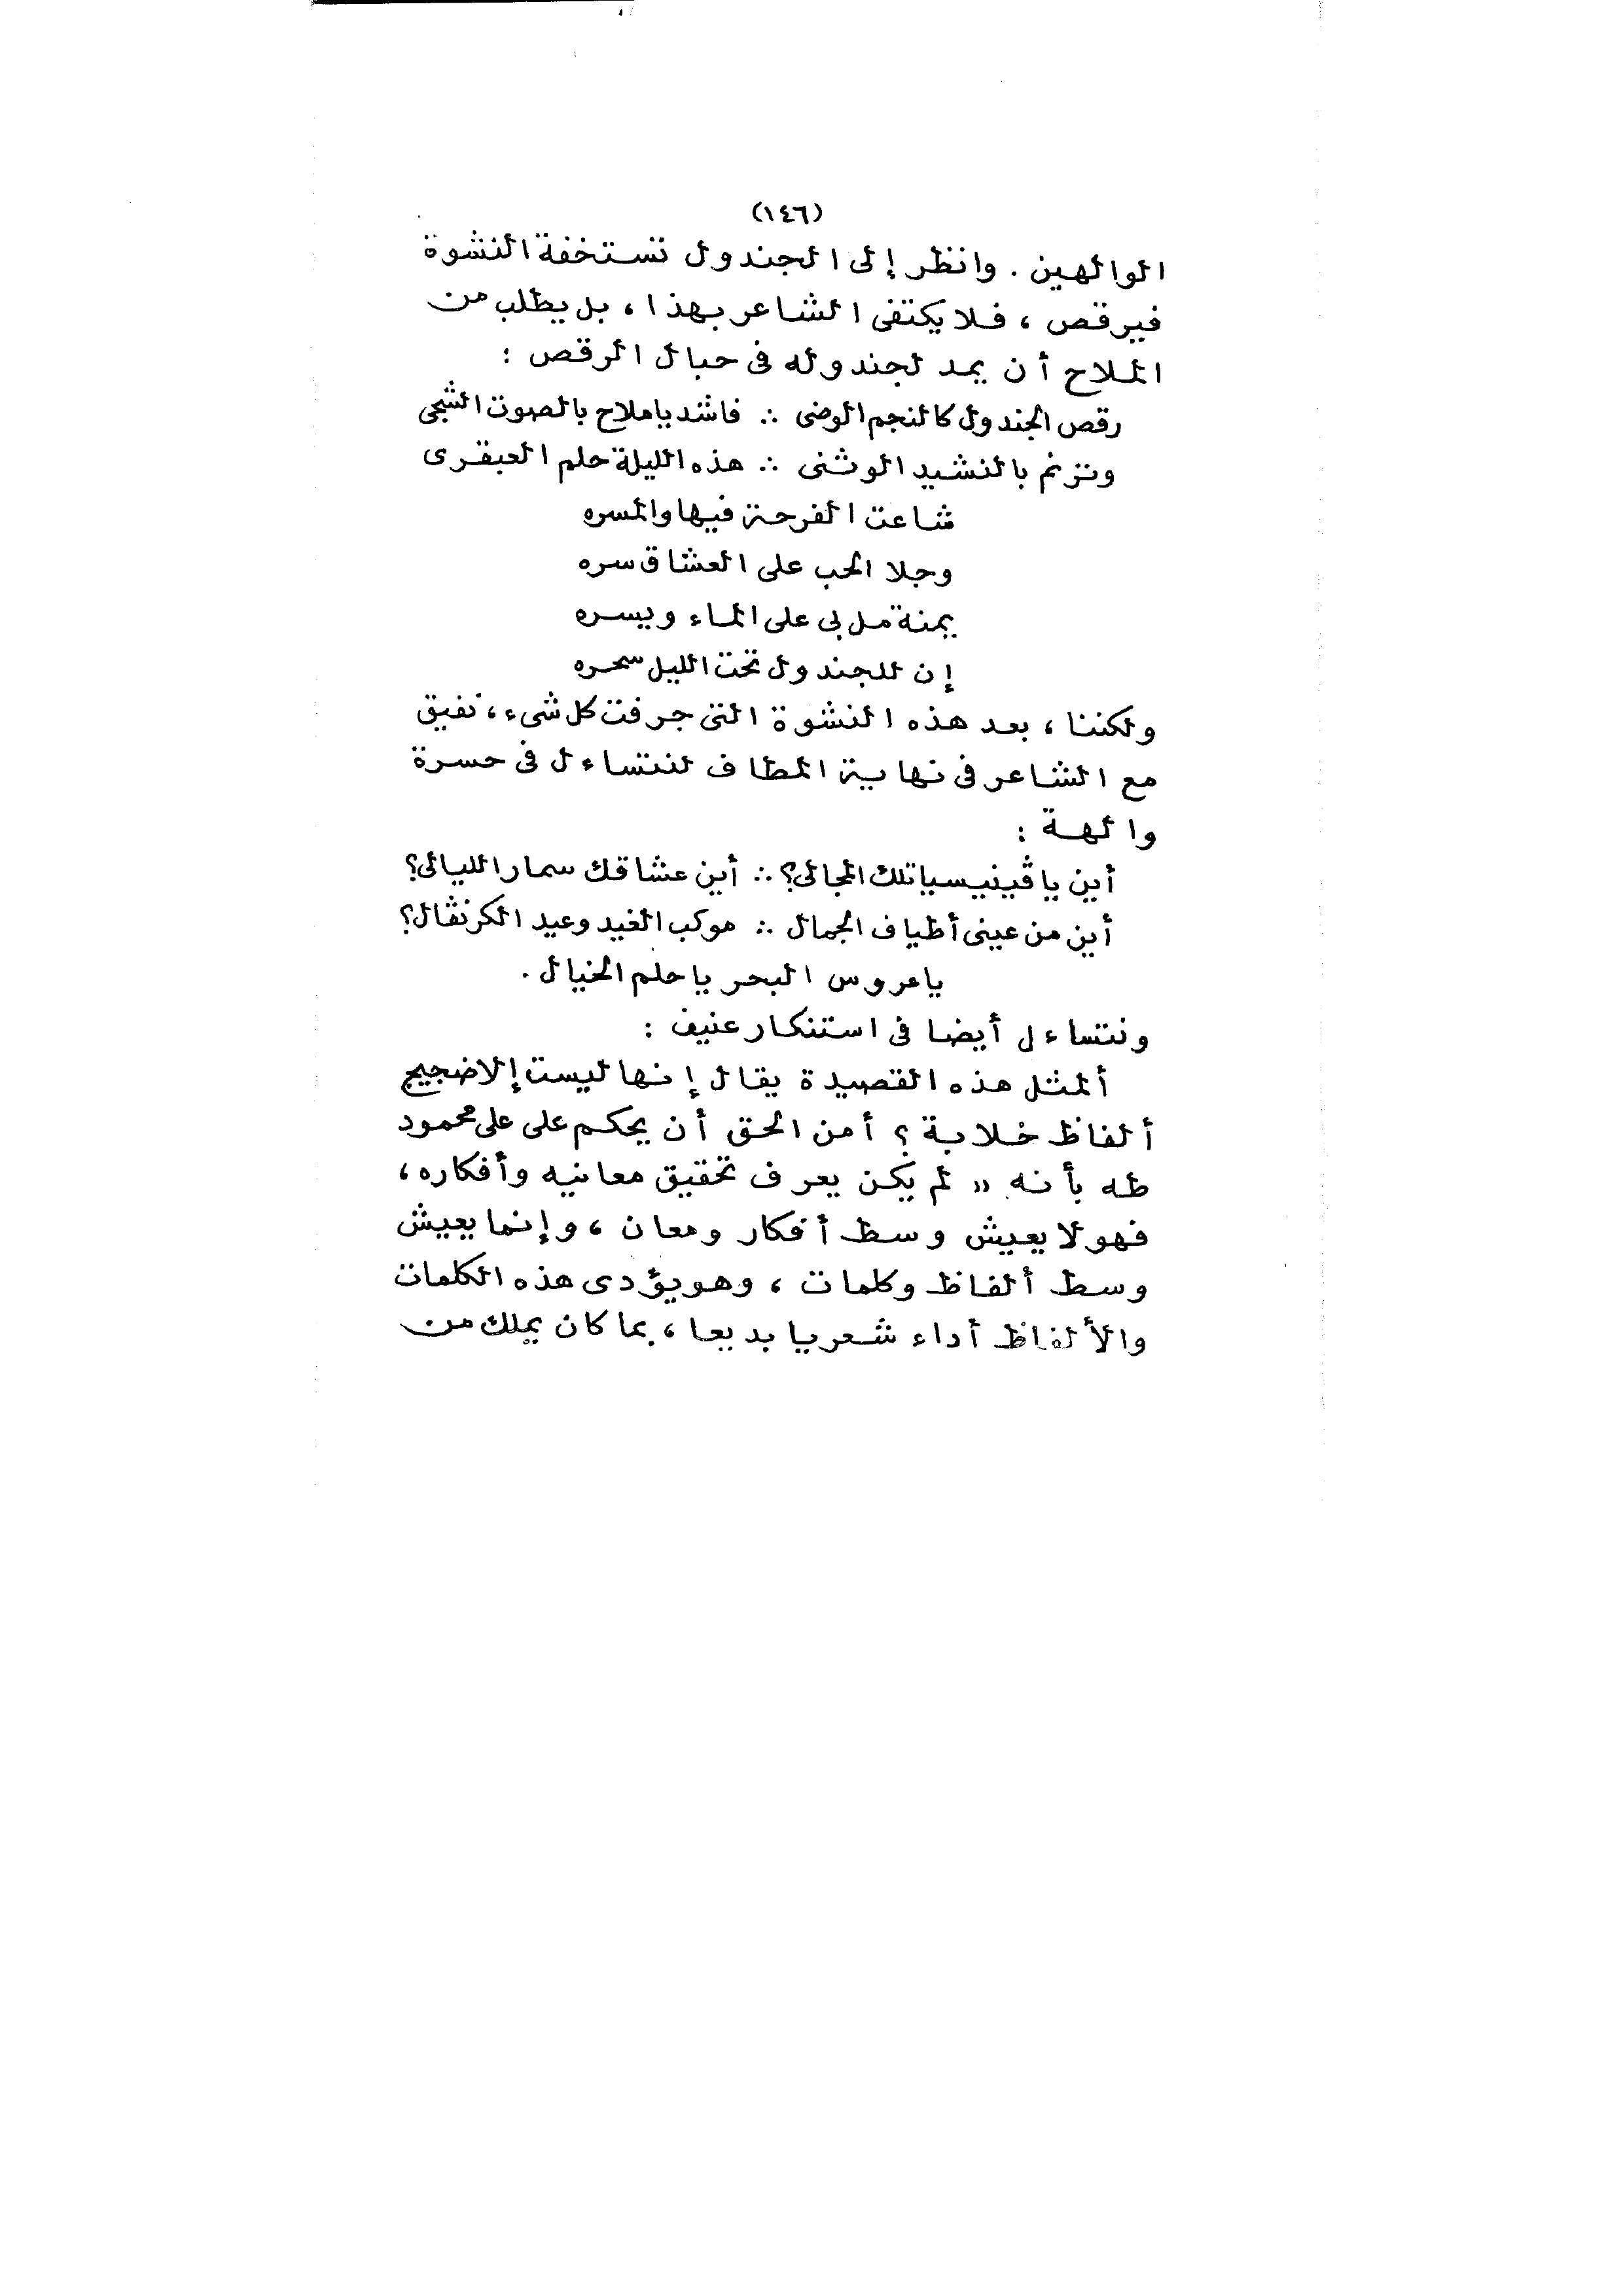 (١٤٦)
الوالهين . وانظر إلى الجندول تستخفة النشوة
فيرقص ، فلا يكتفى الشاعر بهذا ، بل يطلب من
الملاح أن يمد لجندوله فى حبال الرقص :
رقص الجندول كالنجم الوضى ∴ فاشد ياملاح بالصوت الشجى
وترنم بالنشيد الوثنى ∴ هذه الليلة حلم العبقرى
شاعت الفرحة فيها والمسره
وجلا الحب على العشاق سره
يمنة مل بى على الماء ويسره
إن للجندول تحت الليل سحره
ولكننا ، بعد هذه النشوة التى جرفت كل شىء ، نفيق
مع الشاعر فى نهاية المطاف لنتساءل فى حسرة
والهة :
أين يا ڤينيسيا تلك المجالى؟ ∴ أين عشاقك سمار الليالى؟
أين من عينى أطياف الجمال ∴ موكب الغيد وعيد الكرنڤال؟
ياعروس البحر ياحلم الخيال .
ونتساءل أيضا فى استنكار عنيف :
ألمثل هذه القصيدة يقال إنها ليست إلا ضجيج
ألفاظ خلابة ؟ أمن الحق أن يحكم على على محمود
طه بأنه « لم يكن يعرف تحقيق معانيه وأفكاره ،
فهو لا يعيش وسط أفكار ومعان ، وإنما يعيش
وسط ألفاظ وكلمات ، وهو يؤدى هذه الكلمات
والألفاظ أداء شعريا بديعا ، بما كان يملك من